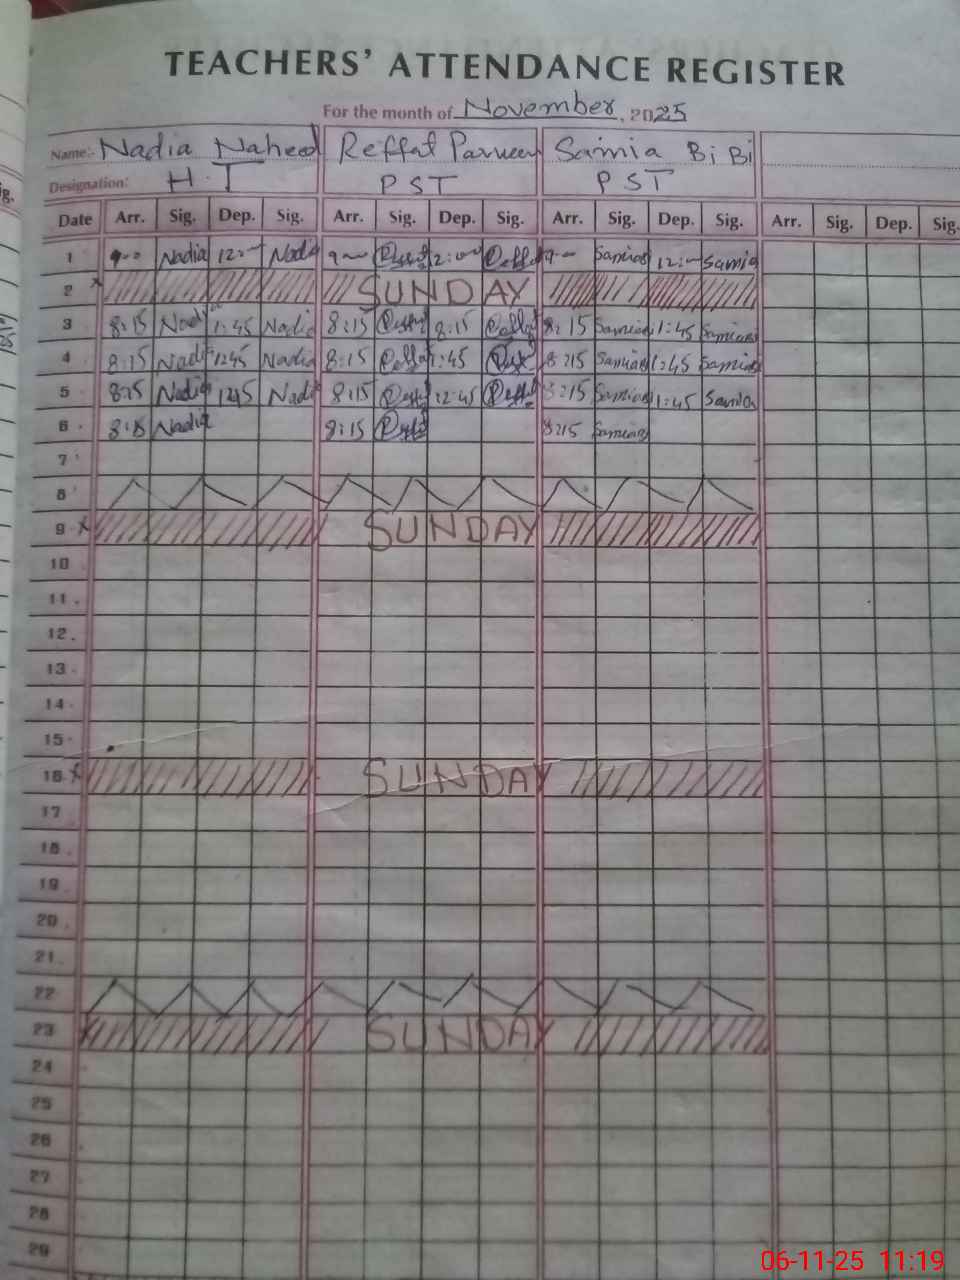 TEACHERS' ATTENDANCE REGISTER
For the month of November, 2025
Name:- Nadia Naheed Reffat Parveen Samia BiBi
Designation: H.T PST PST
Date Arr. Sig. Dep. Sig. Arr. Sig. Dep. Sig. Arr. Sig. Dep. Sig. Arr. Sig. Dep. Sig.
1 9-- Nadia 12:- Nadia 9-- 12:00 9-- Samia 12:- Samia
2 SUNDAY
3 8:15 Nadia 1:45 Nadia 8:15 8:15 8:15 Samia 1:45 Samia
4 8:15 Nadia 1245 Nadia 8:15 1:45 8:15 Samia 1:45 Samia
5 8:15 Nadia 1245 Nadia 8:15 12:45 8:15 Samia 1:45 Samia
6 8:15 Nadia 8:15 8:15 Samia
7
8
9 SUNDAY
10
11
12
13
14
15
16 SUNDAY
17
18
19
20
21
22
23 SUNDAY
24
25
26
27
28
29
06-11-25 11:19